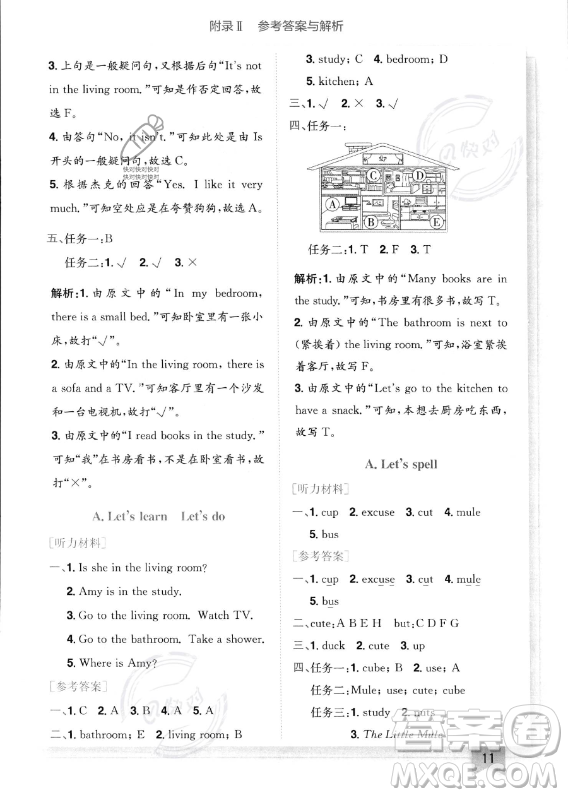 附录Ⅱ 参考答案与解析
3. 上句是一般疑问句，又根据后句“It's not
in the living room.”可知是作否定回答，故
选 F。
4. 由答句“No, it isn't.”可知此处应是由 Is
开头的一般疑问句，故选 C。
5. 根据杰克的回答“Yes. I like it very
much.”可知空处应是在夸赞狗狗，故选 A。
五、任务一：B
任务二：1. √ 2. √ 3. ×
解析：1. 由原文中的“In my bedroom,
there is a small bed.”可知卧室里有一张小
床，故打“√”。
2. 由原文中的“In the living room, there is
a sofa and a TV.”可知客厅里有一个沙发
和一台电视机，故打“√”。
3. 由原文中的“I read books in the study.”
可知“我”在书房看书，不是在卧室看书，故
打“×”。
A. Let's learn Let's do
[听力材料]
一、1. Is she in the living room?
2. Amy is in the study.
3. Go to the living room. Watch TV.
4. Go to the bathroom. Take a shower.
5. Where is Amy?
[参考答案]
一、1. C 2. A 3. B 4. A 5. A
二、1. bathroom; E 2. living room; B
3. study; C 4. bedroom; D
5. kitchen; A
三、1. √ 2. × 3. √
四、任务一：
C
D
A
B
E
任务二：1. T 2. F 3. T
解析：1. 由原文中的“Many books are in
the study.”可知，书房里有很多书，故写 T。
2. 由原文中的“The bathroom is next to
(紧挨着) the living room.”可知，浴室紧挨
着客厅，故写 F。
3. 由原文中的“Let's go to the kitchen to
have a snack.”可知，本想去厨房吃东西，
故写 T。
A. Let's spell
[听力材料]
一、1. cup 2. excuse 3. cut 4. mule
5. bus
[参考答案]
一、1. cup 2. excuse 3. cut 4. mule
5. bus
二、cute: A B E H but: C D F G
三、1. duck 2. cute 3. up
四、任务一：1. cube; B 2. use; A
任务二：Mule; use; cut; cute
任务三：1. study 2. nuts
3. The Little Mule
11
快对
快对快对快对
快对快对快对
答案圈
MXQE.COM